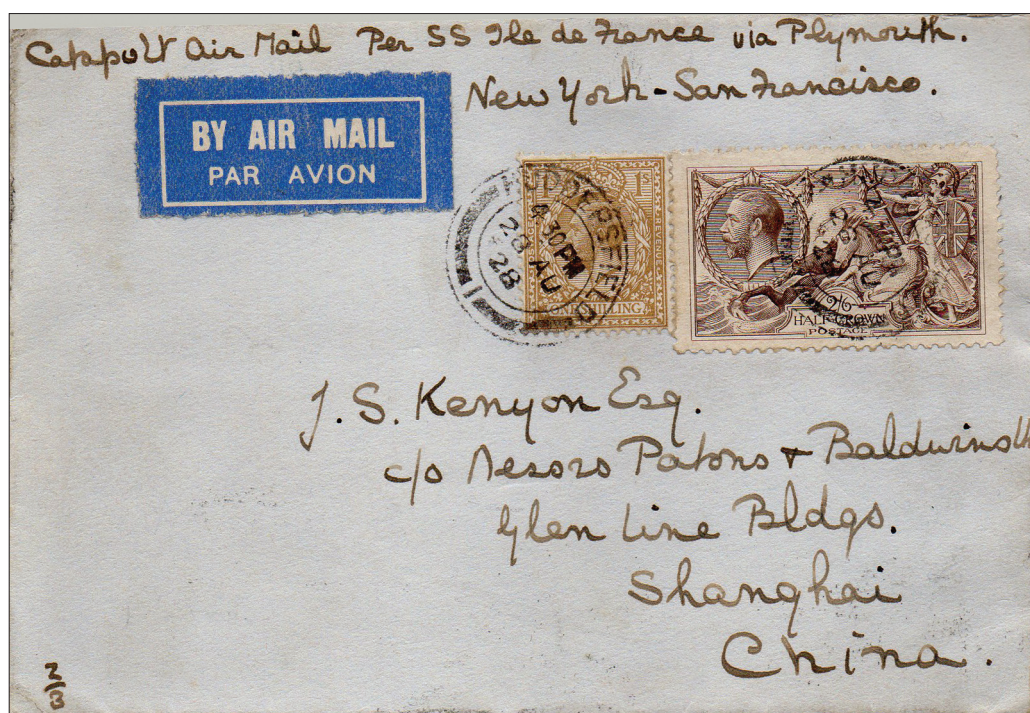 Catapult Air Mail Per SS Ile de France via Plymouth.
New York - San Francisco.
BY AIR MAIL
PAR AVION
HUDDERSFIELD
4.30 PM
28 AU
28
1
REVENUE
ONE SHILLING
2/6
HALF CROWN
POSTAGE
J. S. Kenyon Esq.
c/o Messrs Patons & Baldwins
Glen Line Bldgs.
Shanghai
China.